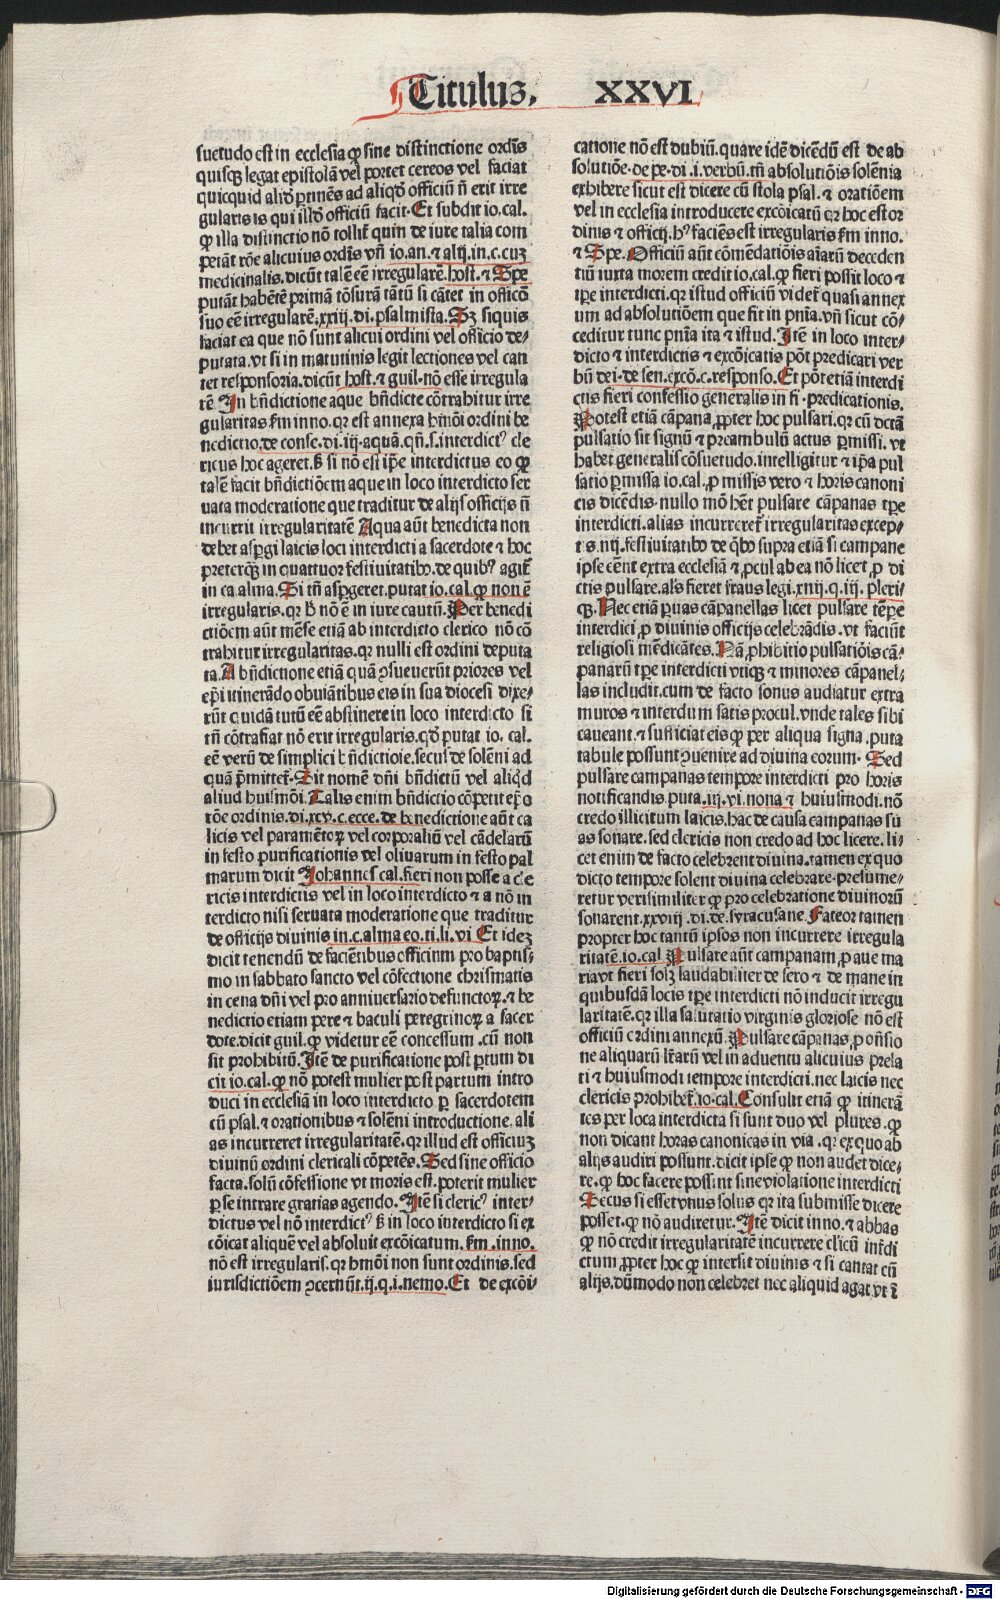 Titulus. XXVI
suetudo est in ecclesia ꝙ sine distinctione ordīs
quisq̄ legat epistolā vel portet cereos vel faciat
quicquid aliđ ꝑtinēs ad aliqđ officiū n̄ erit irre
gularis is qui illđ officiū facit. Et subdit io. cal.
ꝙ illa distinctio nō tollit̄ quin de iure talia com
petāt rōe alicuius ordīs vn̄ io. an. ⁊ alij. in. c. cuꝫ
medicinalis. dicūt talē eē irregularē. host. ⁊ Spe
putāt habētē primā tōsurā tātū si cātet in officō
suo eē irregularē. xxiij. di. psalmista. Sꝫ siquis
faciat ea que nō sunt alicui ordini vel officio de⸗
putata. vt si in matutinis legit lectiones vel can
tet responsoria. dicūt host. ⁊ guil. nō esse irregula
rē In bn̄dictione aque bn̄dicte cōtrahitur irre
gularitas ẜm inno. qꝛ est annexa hmōi ordini be
nedictio. de conse. di. iij. aquā. qn̄. s. interdictꝰ cle
ricus hoc ageret. ß si nō est ip̄e interdictus eo ꝙ
talē facit bn̄dictiōem aque in loco interdicto ser
uata moderatione que traditur de alijs officijs n̄
incurrit irregularitatē Aqua aūt benedicta non
debet asꝑgi laicis loci interdicti a sacerdote ⁊ hoc
preterq̄ in quattuor festiuitatibꝰ. de quibꝰ agit̄
in ca. alma. Si tn̄ asꝑgeret. putat io. cal. ꝙ non ē
irregularis. qꝛ ħ nō ē in iure cautū. Per benedi
ctiōem aūt mēse etiā ab interdicto clerico nō cō
trahitur irregularitas. qꝛ nulli est ordini deputa
ta. A bn̄dictione etiā quā ꝯsueuerūt priores vel
ep̄i itinerādo obuiātibus eis in sua diocesi dixe⸗
rūt quidā tutū eē abstinere in loco interdicto si
tn̄ cōtrafiat nō erit irregularis. qđ putat io. cal.
eē verū de simplici bn̄dictioīe. secus de solēni ad
quā p̄mittet̄. Sit nomē dn̄i bn̄dictū vel aliqđ
aliud huismōi. Talis enim bn̄dictio cōpetit ep̄o
rōe ordinis. di. xcv. c. ecce. de benedictione aūt ca
licis vel paramētoꝝ vel corporaliū vel cādelarū
in festo purificationis vel oliuarum in festo pal
marum dicit Johannes cal. fieri non posse a cle
ricis interdictis vel in loco interdicto ⁊ a nō in
terdicto nisi seruata moderatione que traditur
de officijs diuinis in. c. alma eo. ti. li. vi Et idez
dicit tenendū de faciētibus officium pro baptis⸗
mo in sabbato sancto vel cōfectione chrismatis
in cena dn̄i vel pro anniuersario defunctoꝝ. ⁊ be
nedictio etiam pere ⁊ baculi peregrinoꝝ a sacer
dote. dicit guil. ꝙ videtur eē concessum. cū non
sit prohibitū. Itē de purificatione post ꝑtum di
cit io. cal. ꝙ nō potest mulier post partum intro
duci in ecclesiā in loco interdicto ꝑ sacerdotem
cū psal. ⁊ orationibus ⁊ solēni introductione. ali
as incurreret irregularitatē. qꝛ illud est officiuꝫ
diuinū ordini clericali cōpetēs. Sed sine officio
facta. solū cōfessione vt moris est. poterit mulier
ꝑ se intrare gratias agendo. Itē si clericꝰ inter⸗
dictus vel nō interdictꝰ ß in loco interdicto si ex
cōicat aliquē vel absoluit excōicatum. ẜm. inno.
nō est irregularis. qꝛ hmōi non sunt ordinis. sed
iurisdictiōem ꝯcernūt. ij. q. i. nemo. Et de excōi⸗
catione nō est dubiū. quare idē dicēdū est de ab
solutiōe. de pe. di. i. verbū. tn̄ absolutiōis solēnia
exhibere sicut est dicere cū stola psal. ⁊ oratiōem
vel in ecclesia introducere excōicatū qꝛ hoc est or
dinis ⁊ officij. hꝰ faciēs est irregularis ẜm inno.
⁊ Spe. Officiū aūt cōmēdatiōis aīarū deceden
tiū iuxta morem credit io. cal. ꝙ fieri possit loco ⁊
tp̄e interdicti. qꝛ istud officiū videt̄ quasi annex
um ad absolutiōem que fit in pn̄ia. vn̄ sicut cō⸗
ceditur tunc pn̄ia ita ⁊ istud. Itē in loco inter⸗
dicto ⁊ interdictis ⁊ excōicatis pōt predicari ver
bū dei. de sen. excō. c. responso. Et pōt etiā interdi
ctis fieri confessio generalis in fi. predicationis.
Potest etiā cāpana ꝓpter hoc pulsari. qꝛ cū dcā
pulsatio sit signū ⁊ preambulū actus ꝑmissi. vt
habet generalis cōsuetudo. intelligitur ⁊ ip̄a pul
satio ꝑmissa io. cal. ꝓ missis vero ⁊ horis canoni
cis dicēdis. nullo mō hēt pulsare cāpanas tp̄e
interdicti. alias incurreret̄ irregularitas excep⸗
tis. iiij. festiuitatibꝰ de qbꝰ supra etiā si campane
ipse cēnt extra ecclesiā ⁊ ꝓcul ab ea nō licet ꝓ di
ctis pulsare. als fieret fraus legi. xviij. q. iij. pleri⸗
q̄. Nec etiā ꝑuas cāpanellas licet pulsare tēpe
interdici ꝓ diuinis officijs celebrādis. vt faciūt
religiosi mēdicātes. Nā ꝓhibitio pulsatiōis cā⸗
panarū tp̄e interdicti vtiq̄ ⁊ minores cāpanel⸗
las includit. cum de facto sonus audiatur extra
muros ⁊ interdum satis procul. vnde tales sibi
caueant. ⁊ sufficiat eis ꝙ per aliqua signa. puta
tabule possunt ꝯuenire ad diuina eorum. Sed
pulsare campanas tempore interdicti pro horis
notificandis. puta. iij. vi. nona ⁊ huiusmodi. nō
credo illicitum laicis. hac de causa campanas su
as sonare. sed clericis non credo ad hoc licere. li⸗
cet enim de facto celebrent diuina. tamen ex quo
dicto tempore solent diuina celebrare. presume⸗
retur verisimiliter ꝙ pro celebratione diuinorū
sonarent. xxviij. di. de. syracusane. Fateor tamen
propter hoc tantū ipsos non incurrere irregula
ritatē. io. cal. Pulsare aūt campanam ꝓ aue ma
ria vt fieri solꝫ laudabiliter de sero ⁊ de mane in
quibusdā locis tp̄e interdicti nō inducit irregu
laritatē. qꝛ illa salutatio virginis gloriose nō est
officiū ordini annexū. Pulsare cāpanas ꝓ ōn̄sio
ne aliquarū lr̄arū vel in aduentu alicuius prela
ti ⁊ huiusmodi tempore interdicti. nec laicis nec
clericis prohibet̄. io. cal. Consulit etiā ꝙ itinerā
tes per loca interdicta si sunt duo vel plures. ꝙ
non dicant horas canonicas in via. qꝛ ex quo ab
alijs audiri possunt. dicit ipse ꝙ non audet dice⸗
re. ꝙ hoc facere possint sine violatione interdicti
Secus si esset vnus solus qꝛ ita submisse dicere
posset. ꝙ nō audiretur. Itē dicit inno. ⁊ abbas
ꝙ nō credit irregularitatē incurrere clicū int̄di
ctum ꝓpter hoc ꝙ intersit diuinis ⁊ si cantat cū
alijs. dūmodo non celebret nec aliquid agat vt ī
Digitalisierung gefördert durch die Deutsche Forschungsgemeinschaft - DFG